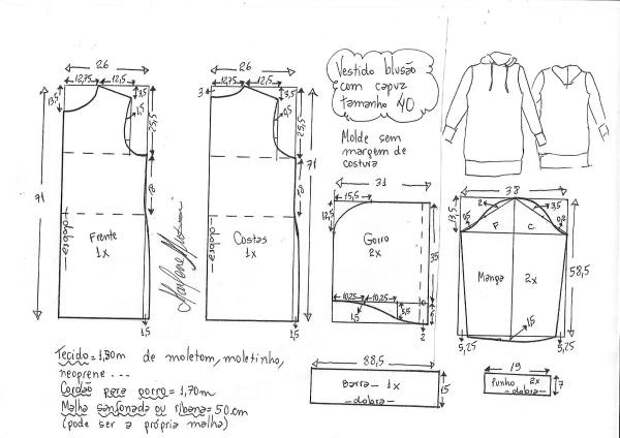 26
12,75 12,5
13,5
3,5
1,5
25,5
71
18
dobra
Frente
1x
1,5
26
12,75 12,5
3
3,5
0,5
25,5
71
18
dobra
Costas
1x
1,5
Vestido blusão
com capuz
tamanho 40
Molde sem
margem de
costura
31
15,5
12,5
Gorro
2x
35
10,25 10,25
1,5
5,5
2
38
13,5
2
3,5
0,5
0,2
F C
Manga 2x
58,5
1,5
5,25 5,25
88,5
Barra - 1x
- dobra -
15
19
Punho 2x
- dobra -
7
Tecido = 1,30m de moletom, moletinho,
neoprene...
Cordão para gorro = 1,70m
Malha sanfonada ou ribana = 50cm
(pode ser a própria malha)